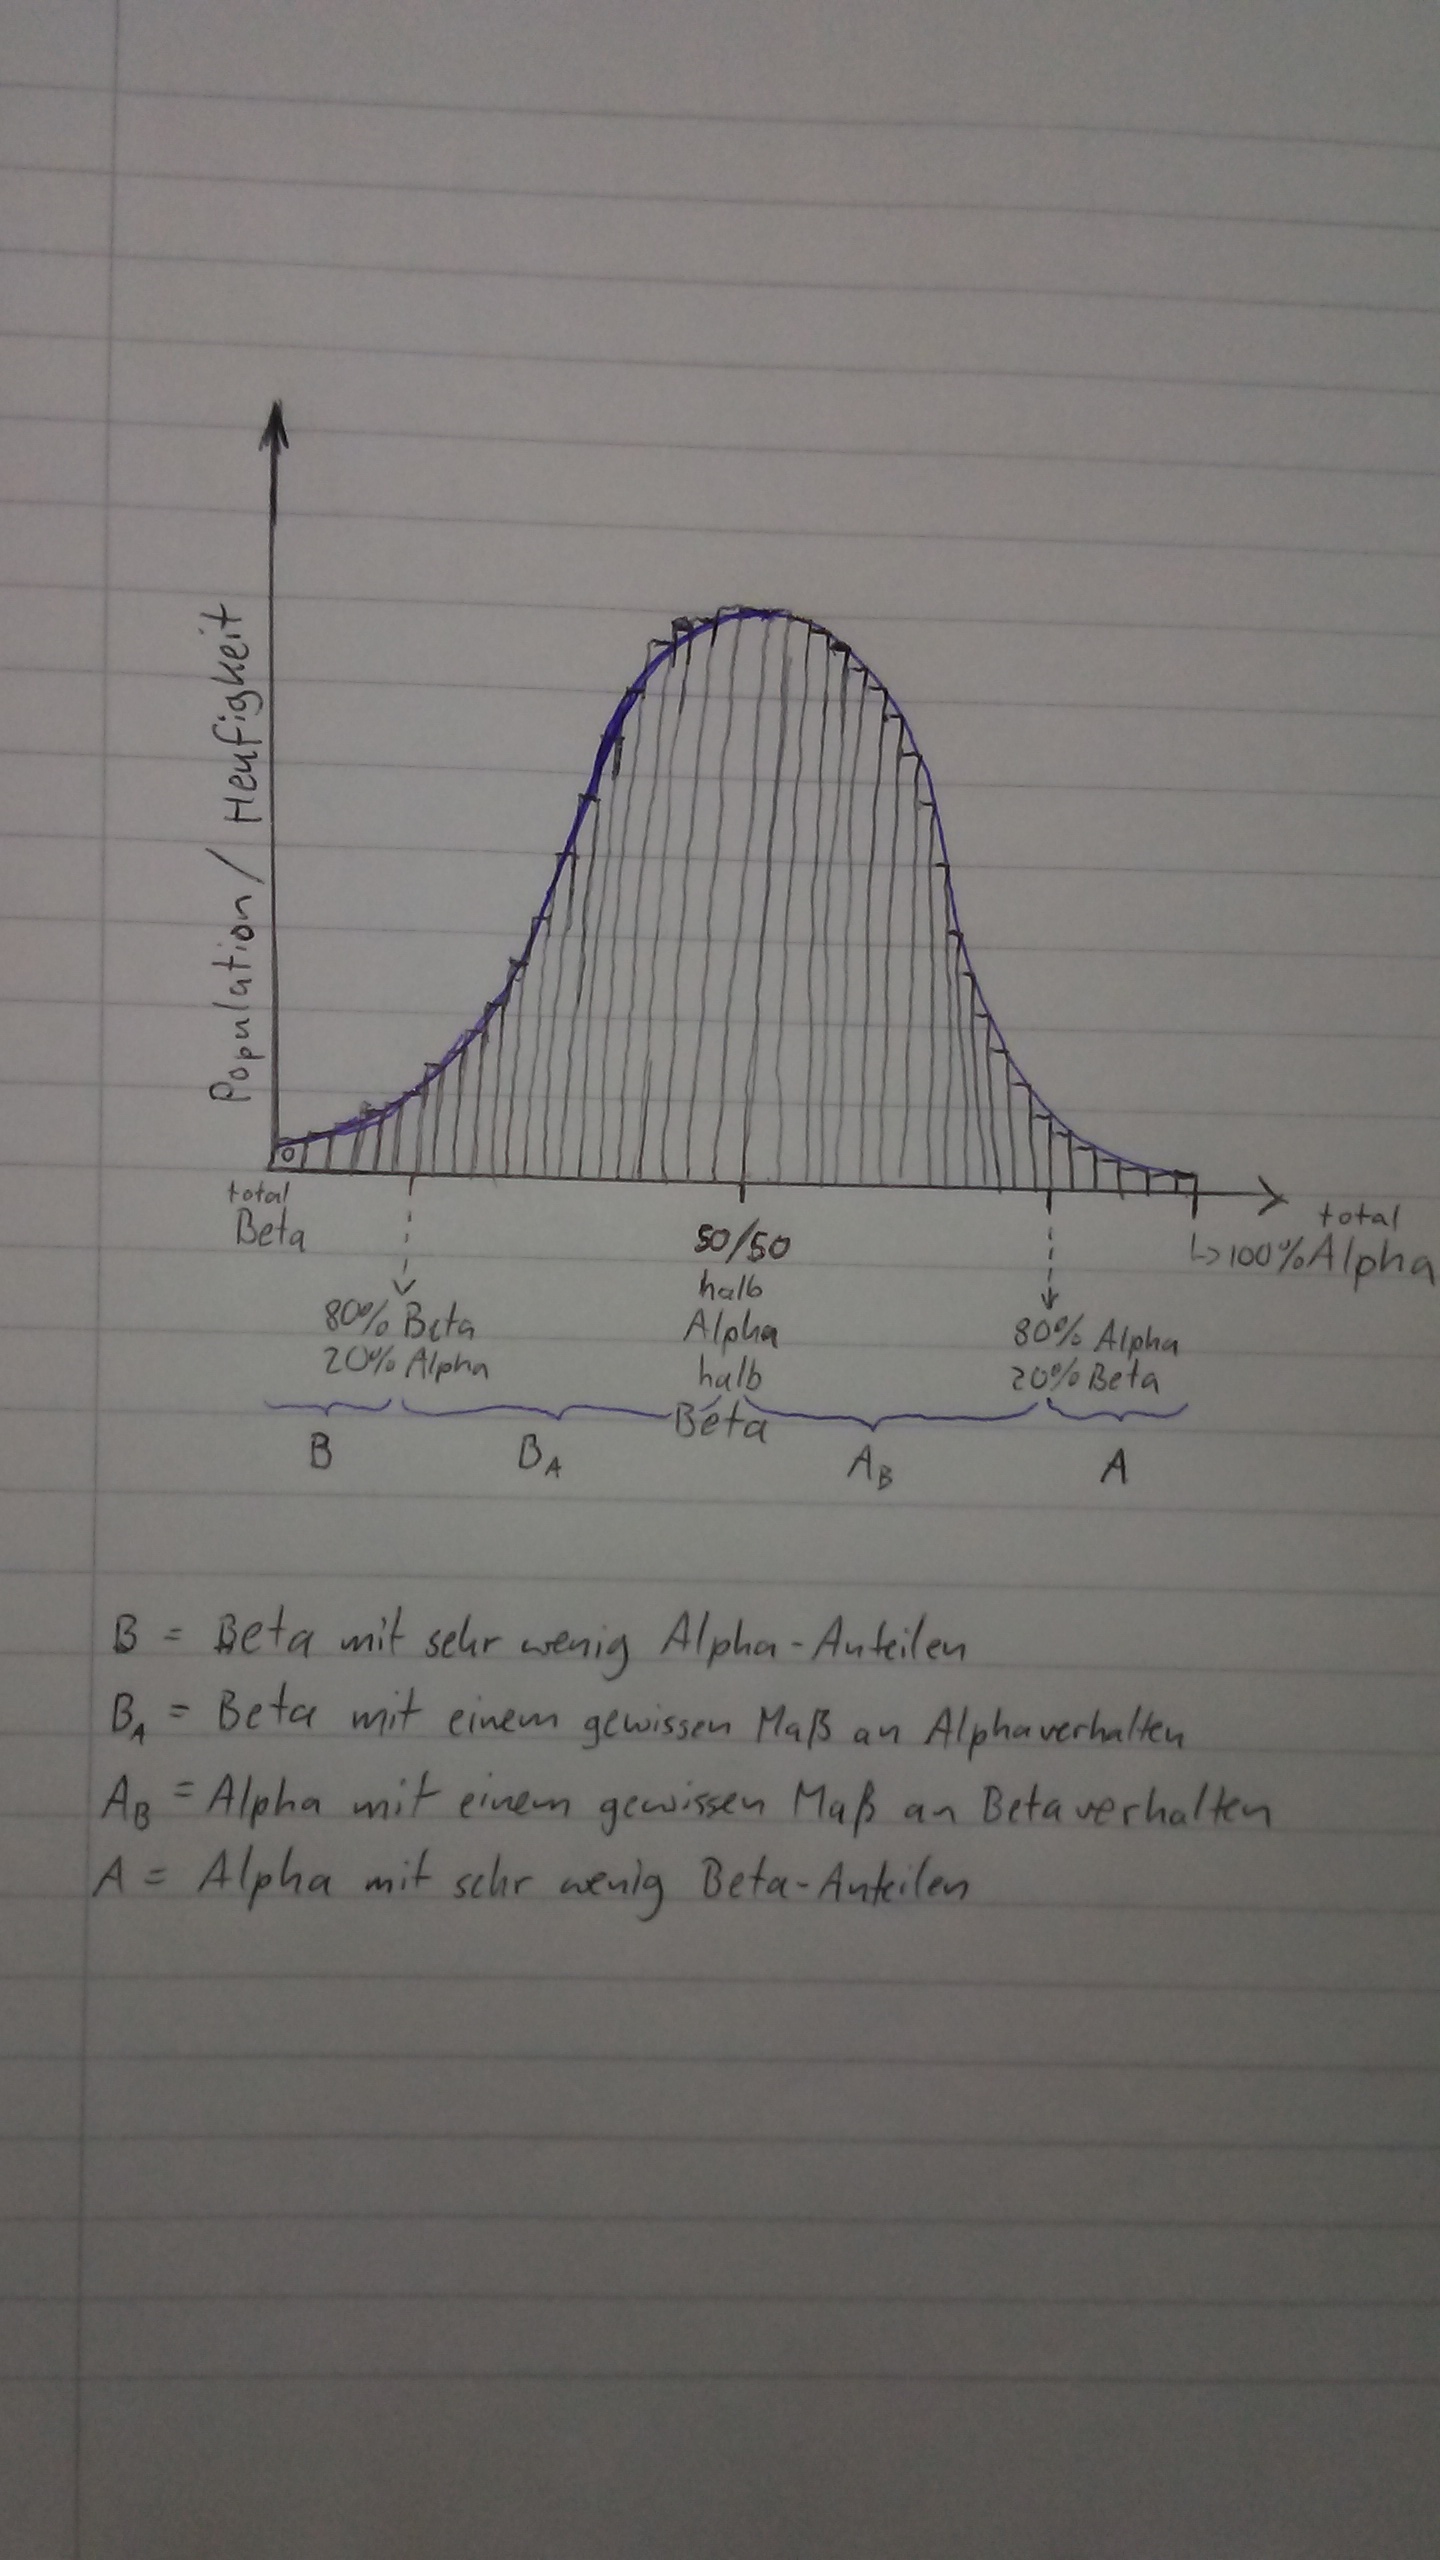 Population / Heufigkeit
0
total
Beta
80% Beta
20% Alpha
50/50
halb
Alpha
halb
Beta
80% Alpha
20% Beta
total
↳100% Alpha
B
BA
AB
A
B = Beta mit sehr wenig Alpha-Anteilen
BA = Beta mit einem gewissen Maß an Alphaverhalten
AB = Alpha mit einem gewissen Maß an Betaverhalten
A = Alpha mit sehr wenig Beta-Anteilen